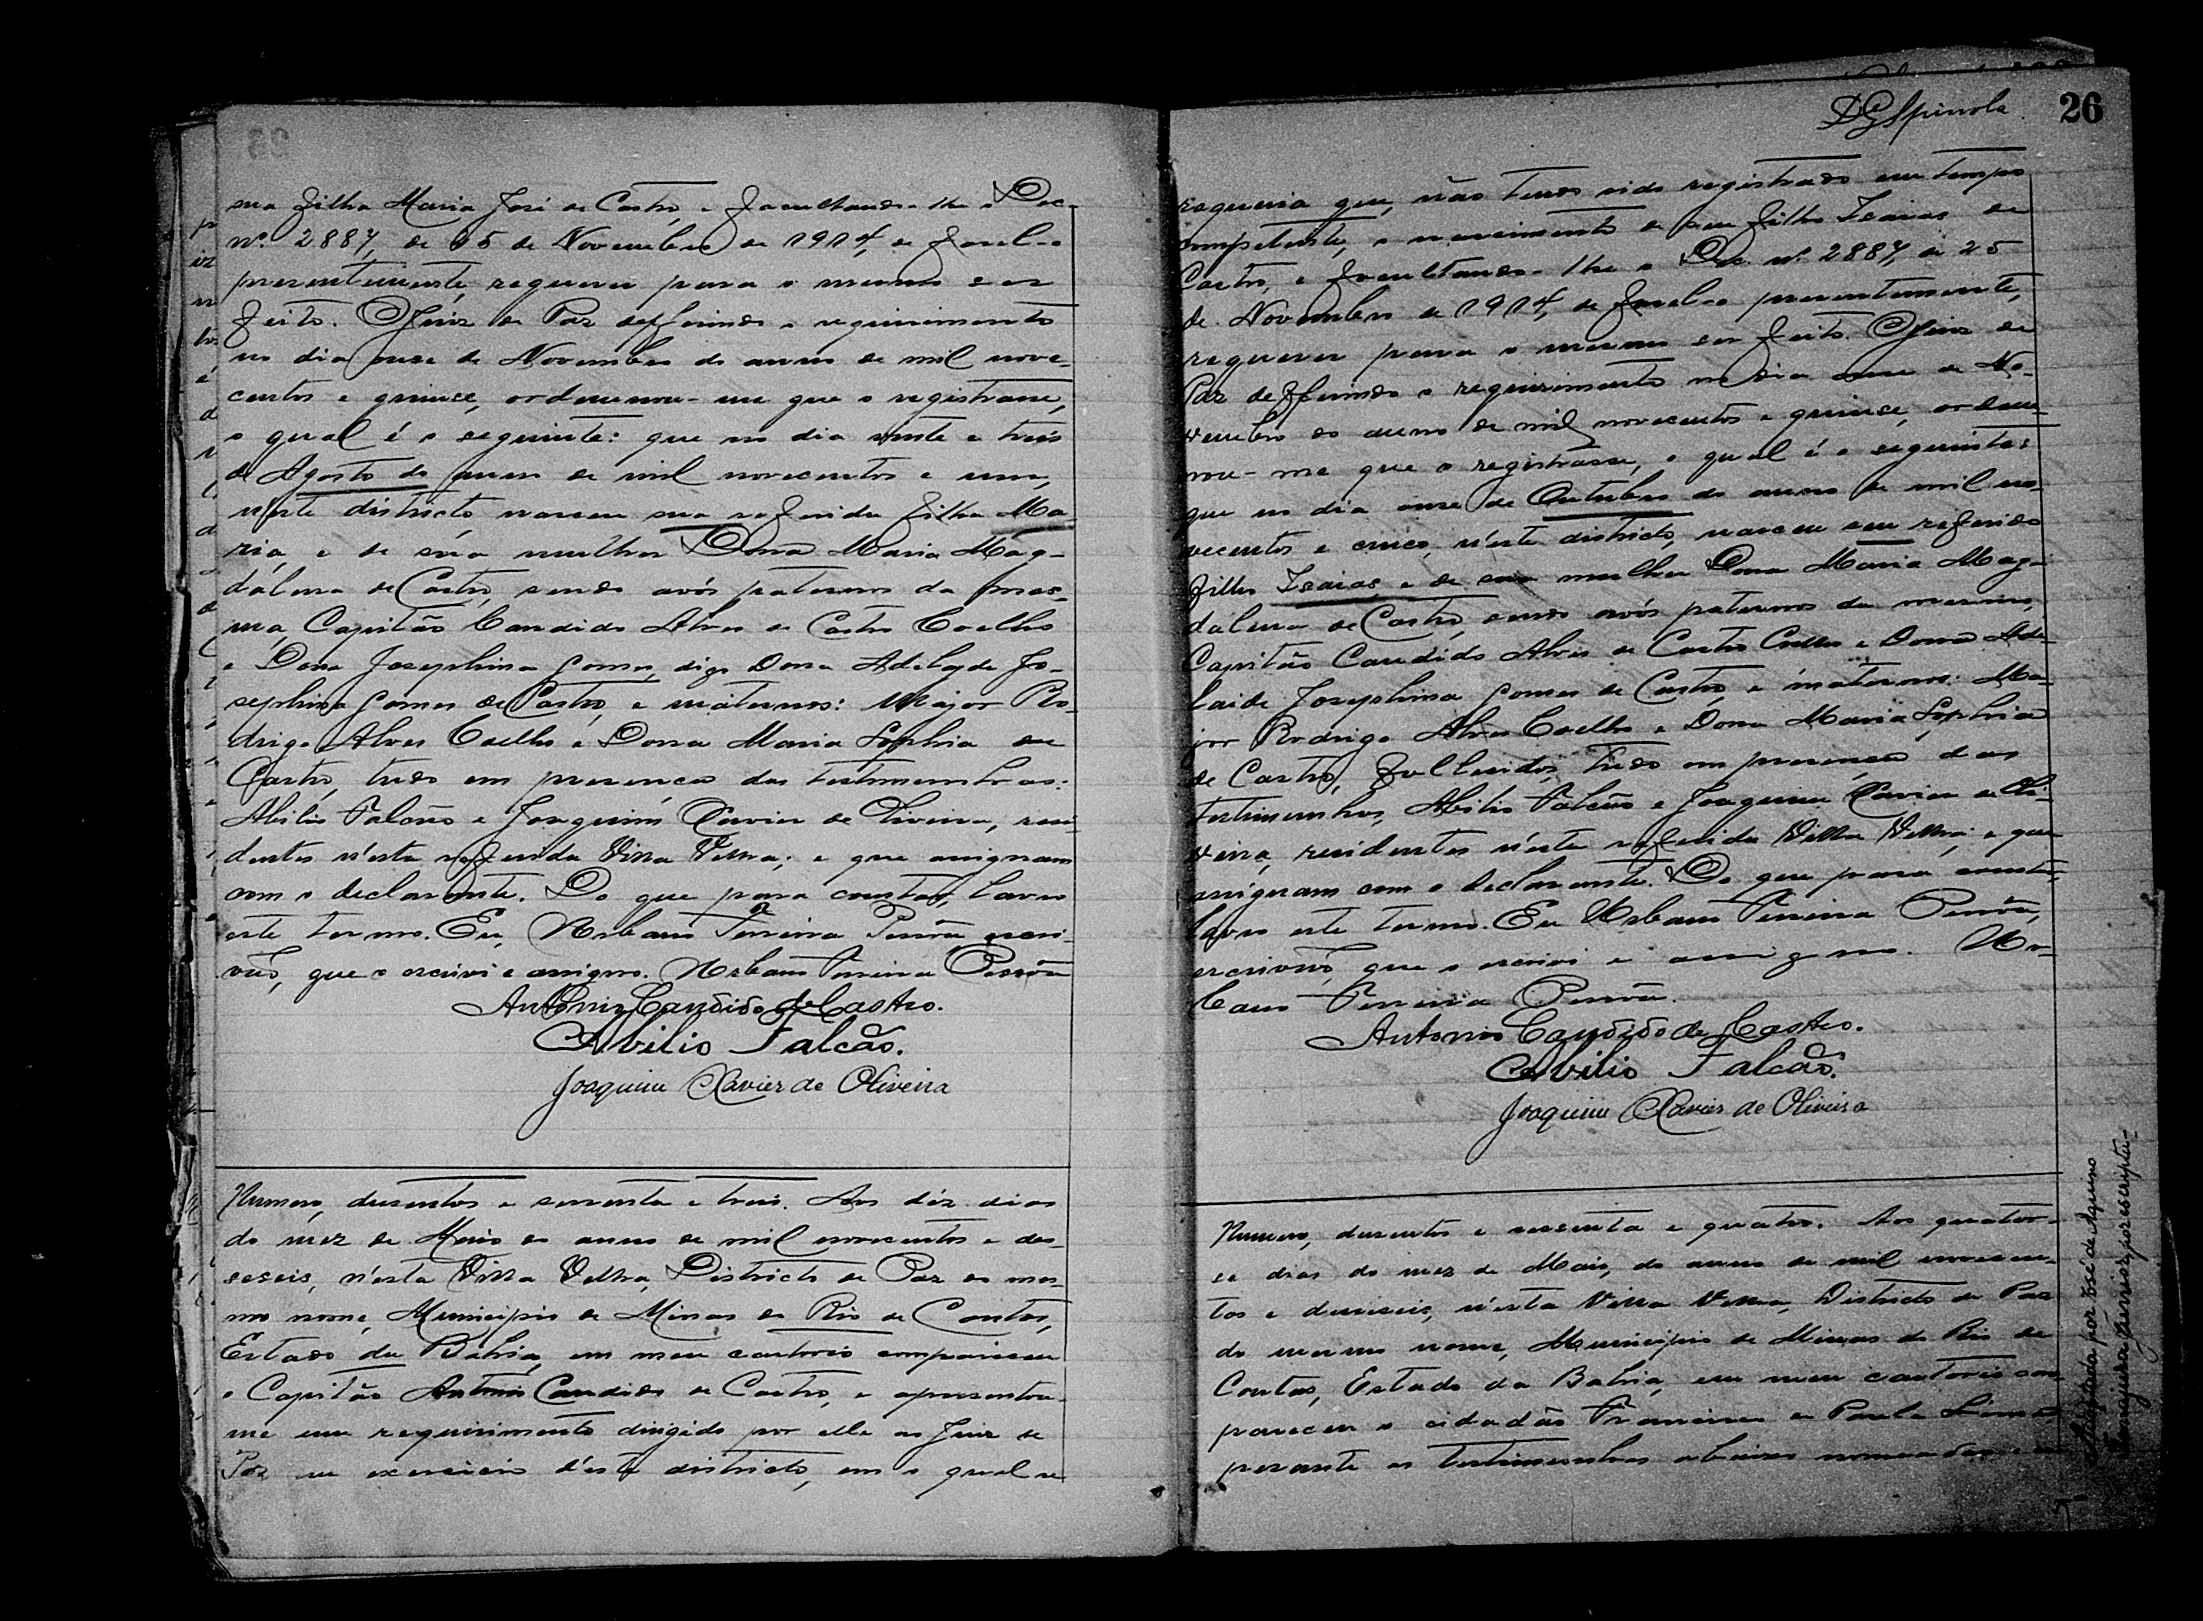 sua filha Maria José de Castro, e facultando-lhe o Dec.
nº 2887, de 25 de Novembro de 1914, de fazel-o
presentemente, requereu para o mesmo ser
feito. O Juiz de Paz defferindo o requerimento
no dia onze de Novembro do anno de mil nove-
centos e quinze, ordenou-me que o registrasse,
o qual é o seguinte: que no dia vinte e tres
de Agosto do anno de mil novecentos e um,
n'este districto nasceu sua referida filha Ma-
ria, e de sua mulher Dona Maria Mag-
dalena de Castro, sendo avós paternos da mes-
ma, Capitão Candido Alves de Castro Coelho
e Dona Josephina Gomes, digo Dona Adelayde Jo-
sephina Gomes de Castro, e maternos: Major Ro-
drigo Alves Coelho e Dona Maria Sophia de
Castro, tudo em presença das testimunhas:
Abilio Falcão e Joaquim Xavier de Oliveira, resi-
dentes n'esta referida Villa Velha; e que assignam
com o declarante. Do que para constar, lavro
este termo. Eu, Urbano Pereira Pessôa escri-
vão, que o escrivi e assigno. Urbano Pereira Pessôa
Antonio Candido de Castro.
Abilio Falcão.
Joaquim Xavier de Oliveira
Numero, dusentos e sessenta e tres. Aos dés dias
do mez de Maio do anno de mil novecentos e des-
seseis, n'esta Villa Velha, Districto de Paz do mes-
mo nome, Municipio de Minas do Rio de Contas,
Estado da Bahia, em meu cartorio compareceu
o Capitão Antonio Candido de Castro, e apresentou-
me um requerimento dirigido por elle ao Juiz de
Paz em exercicio d'este districto, em o qual se
DGSpinola 26
requeria que, não tendo sido registrado em tempo
competente, o nascimento de seu filho Isaias de
Castro, e facultando-lhe o Dec. nº 2887, de 25
de Novembro de 1914, de fazel-o presentemente,
requereu para o mesmo ser feito. O Juiz de
Paz defferindo o requerimento no dia onze de No-
vembro do anno de mil novecentos e quinze, orde-
nou-me que o registrasse, o qual é o seguinte:
que no dia onze de Outubro do anno de mil no-
vecentos e cinco, n'este districto, nasceu seu referido
filho Isaias, e de sua mulher Dona Maria Mag-
dalena de Castro, sendo avós paternos do mesmo,
Capitão Candido Alves de Castro Coelho e Dona Ade-
laide Josephina Gomes de Castro, e maternos: Ma-
jor Rodrigo Alves Coelho e Dona Maria Sophia
de Castro, fallecidos, tudo em presença das
testimunhas, Abilio Falcão e Joaquim Xavier de Oli-
veira, residentes n'esta referida Villa Velha; e que
assignam com o declarante. Do que para constar,
lavro este termo. Eu Urbano Pereira Pessôa,
escrivão, que o escrivi e assigno. Ur-
bano Pereira Pessôa.
Antonio Candido de Castro.
Abilio Falcão.
Joaquim Xavier de Oliveira
Numero, dusentos e sessenta e quatro. Aos quator-
se dias do mez de Maio, do anno de mil novecen-
tos e deseseis, n'esta Villa Velha, Districto de Paz
do mesmo nome, Municipio de Minas do Rio de
Contas, Estado da Bahia, em meu cartorio com-
pareceu o cidadão Francisco de Paula
perante as testimunhas abaixo nomeadas
Adoptada por José de Aquino
Tanajura Junior por escriptu-